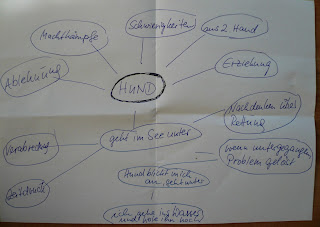 Schwierigkeiten
aus 2. Hand
Machtkämpfe
Erziehung
Ablehnung
HUND
Nachdenken über
Rettung
geht im See unter
Verabredung
wenn untergegangen
Problem gelöst
Zeitdruck
Hund blickt mich
an, geht unter
ich gehe ins Wasser
und hole ihn hoch